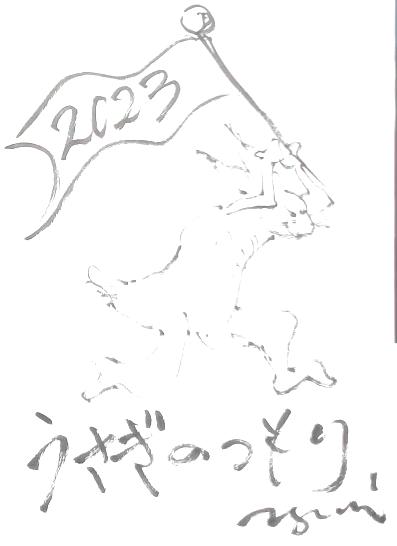 2023
うさぎのつとり